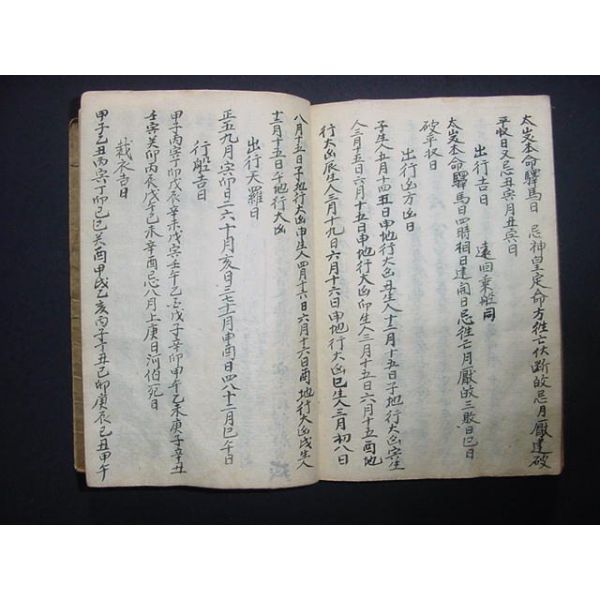 太歲本命驛馬日 忌神皇定命方徃亡伏断的忌月厭建破
平收日又忌丑寅月丑寅日
出行吉日 遠回乘船同
太歲本命驛馬日四時相日建開日忌徃亡月厭的三敗日巳日
破平收日
出行凶方凶日
子生人五月十四五日申地行大凶丑生人十二月十五日子地行大凶寅生
人三月十五日六月十五日申地行大凶卯生人三月十五日六月十五酉地
行大凶辰生人三月十九日六月十六日申地行大凶巳生人三月初八日
八月十五日子地行大凶申生人四月十六日六月十六日酉地行大凶戌生人
十二月十五日午地行大凶
出行天羅日
正五九月寅卯日二六十月亥日三七十一月申酉日四八十二月巳午日
行船吉日
甲子丙寅丁卯戊辰辛未戊寅壬午乙酉戊子辛卯甲午乙未庚子辛丑
壬寅癸卯丙辰戊午己未辛酉忌八月上庚日河伯死日
裁衣吉日
甲子乙丑丙寅丁卯己巳癸酉甲戌乙亥丙子辛丑己卯庚辰己丑甲午